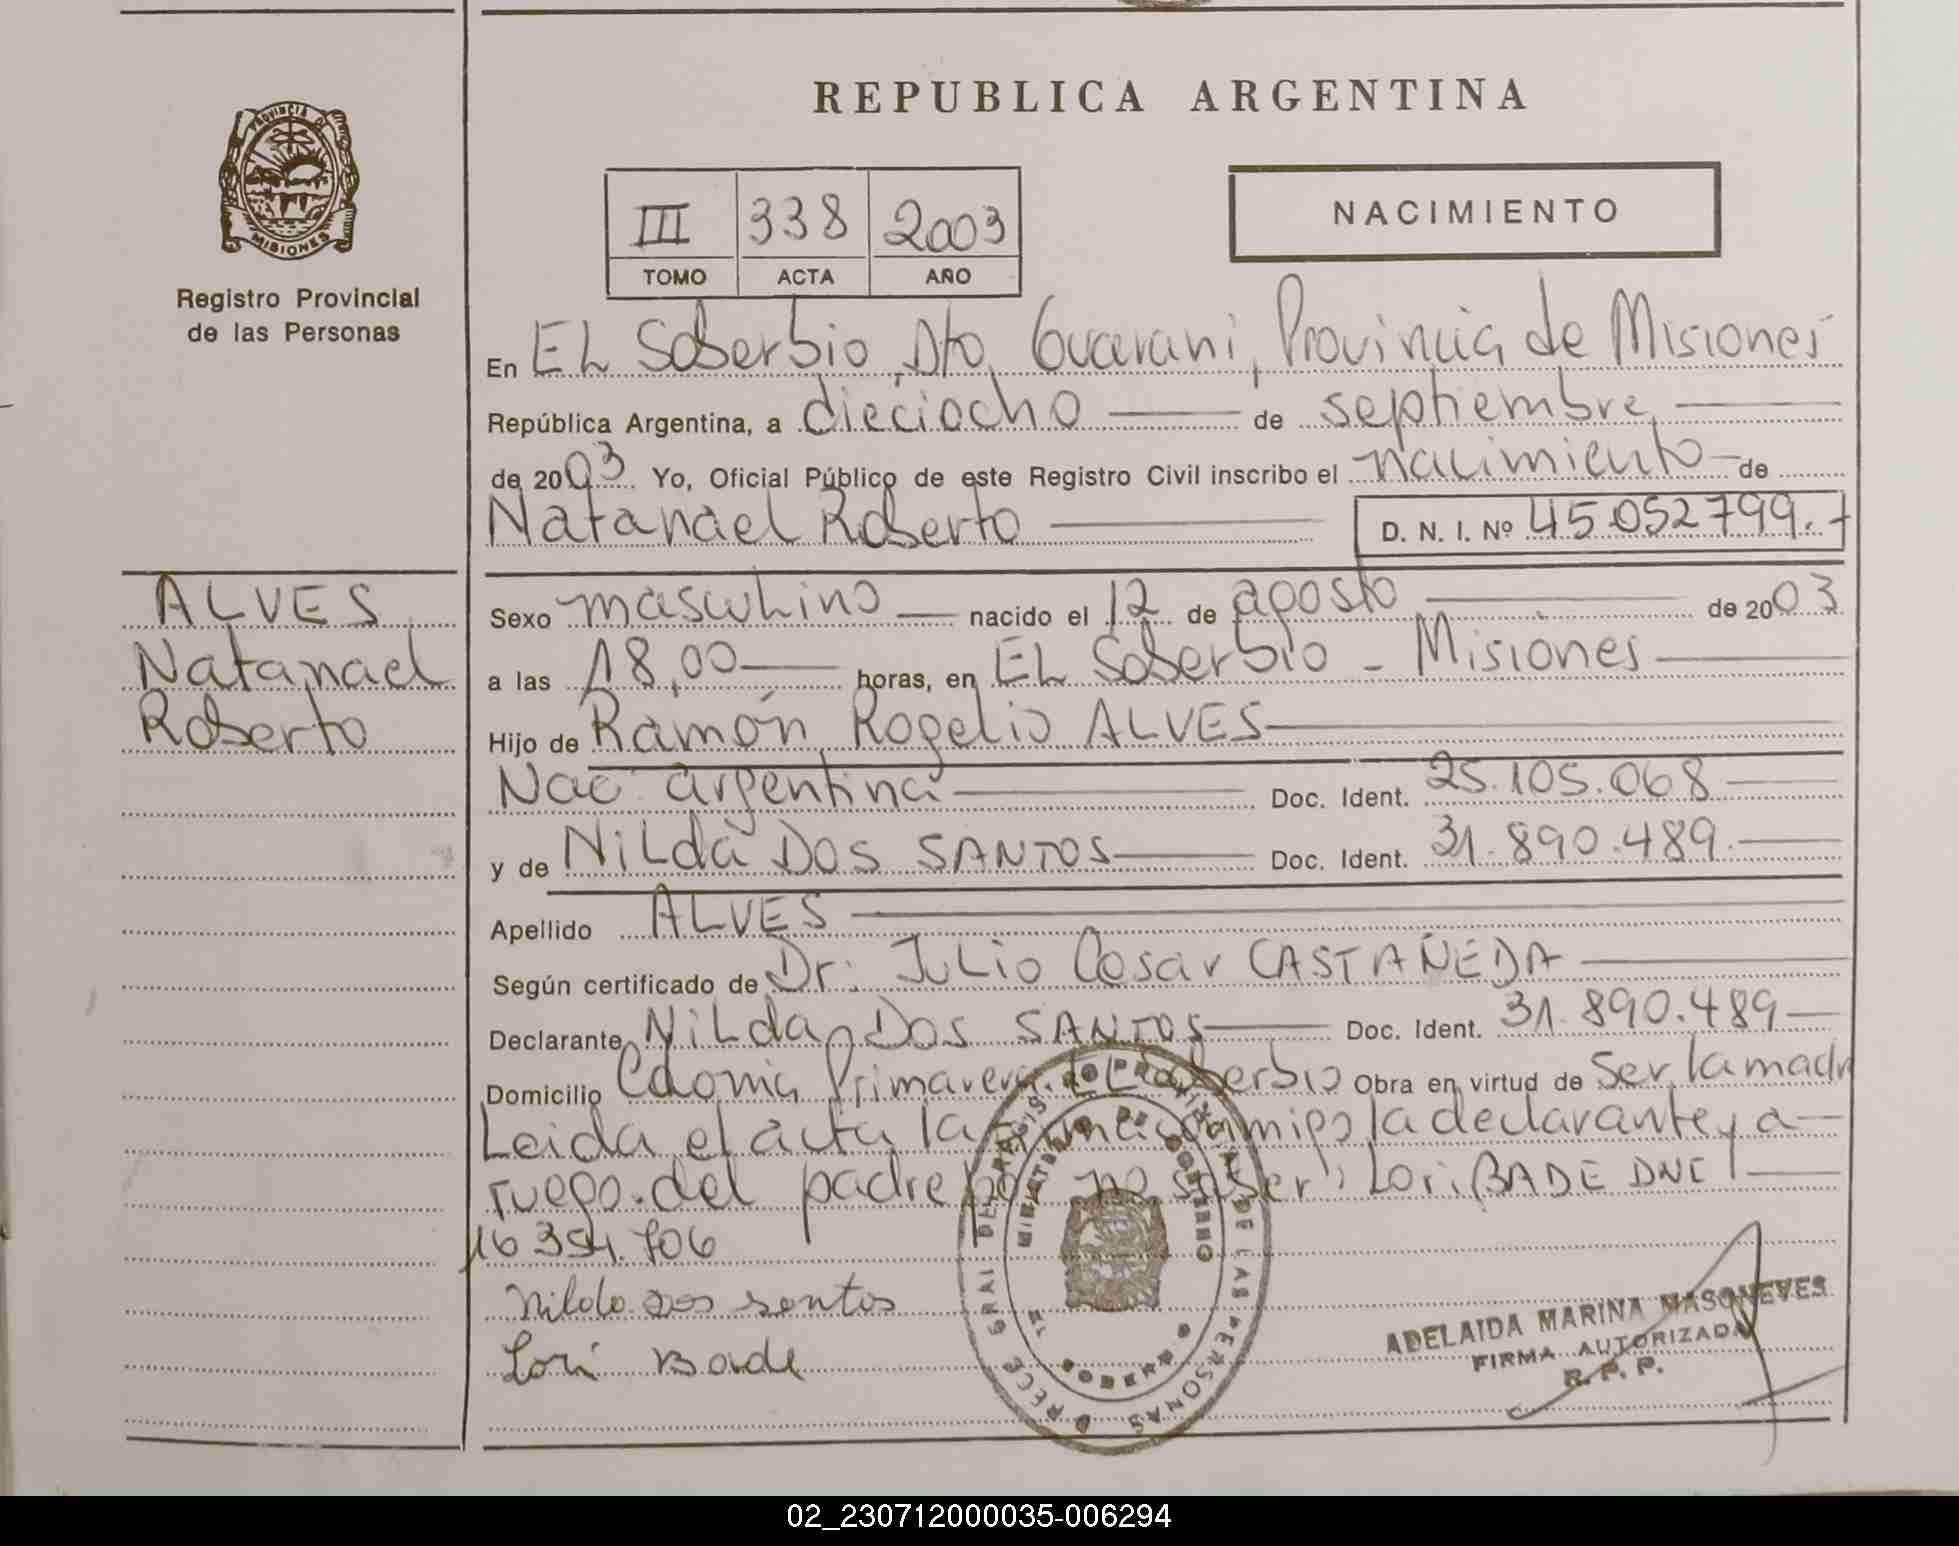 REPUBLICA ARGENTINA
PROVINCIA DE
MISIONES
Registro Provincial
de las Personas
III 338 2003
TOMO ACTA AÑO
NACIMIENTO
En EL Soberbio, Dto. Guarani, Provincia de Misiones
República Argentina, a dieciocho de septiembre
de 2003 Yo, Oficial Público de este Registro Civil inscribo el nacimiento de
Natanael Roberto D. N. I. Nº 45.052799.
ALVES
Natanael
Roberto
Sexo masculino nacido el 12 de agosto de 2003
a las 18,00 horas, en EL Soberbio - Misiones
Hijo de Ramón Rogelio ALVES
Nac argentina Doc. Ident. 25.105.068
y de Nilda DOS SANTOS Doc. Ident. 31.890.489.
Apellido ALVES
Según certificado de Dr. Julio Cesar CASTAÑEDA
Declarante Nilda DOS SANTOS Doc. Ident. 31.890.489
Domicilio Colonia Primavera. EL Soberbio Obra en virtud de Ser la madr
Leida el acta la firma conmigo la declarante, a
ruego del padre por no saber, Lori BADE DNI
16 354.706
Nilda dos santos
Lori Bade
MINISTERIO DE GOBIERNO
DE LAS PERSONAS
ADELAIDA MARINA MASONEVES
FIRMA AUTORIZADA
R. P. P.
02_230712000035-006294